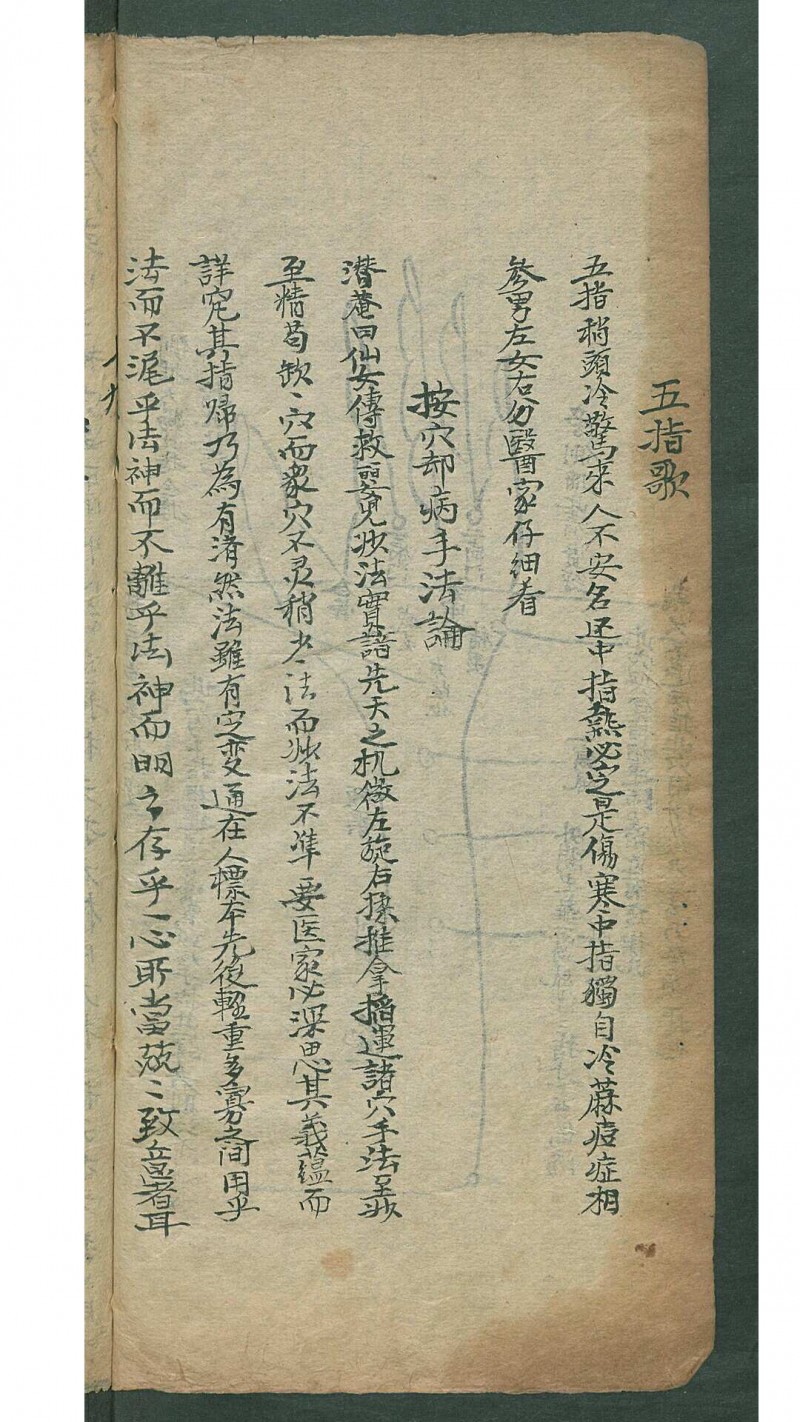 五指歌
五指稍頭冷驚來人不安名还中指熱必定是傷寒中指獨自冷蔴痘症相
參男左女右分醫家仔細看
按穴却病手法論
潜菴曰仙女傳救嬰児妙法實諳先天之机微左旋右揉推拿掐運諸穴手法至妙
至精苟欽一穴而衆穴不灵稍少一法而妙法不準要医家必深思其義蕴而
詳究其指歸乃為有済然法雖有定变通在人標本先後輕重多寡之间用乎
法而不泥乎法神而不離乎法神而明之存乎一心所當兢〻致意者耳